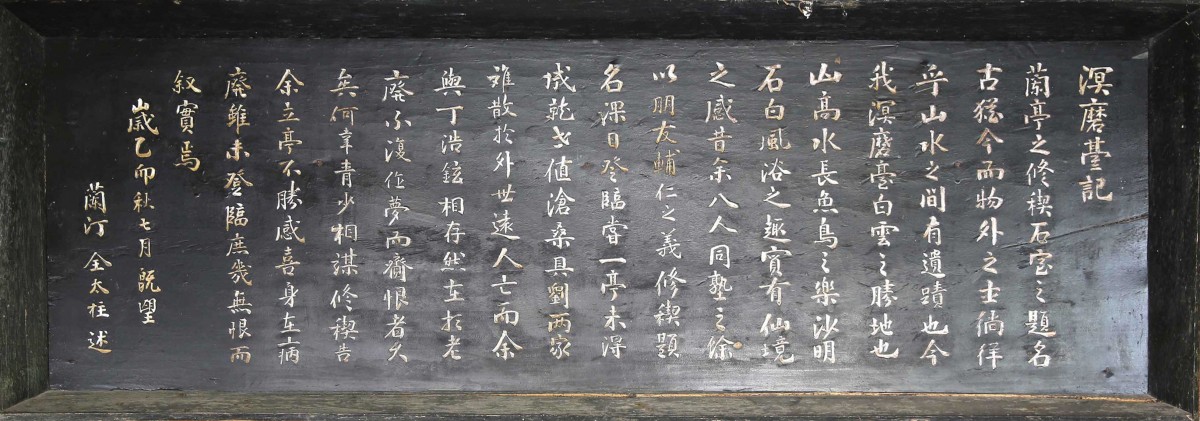 溟磨臺記
蘭亭之修稧石室之題名
古猶今而物外之士徜徉
乎山水之間有遺蹟也今
我溟磨臺白雲之勝地也
山高水長魚鳥之樂沙明
石白風浴之趣實有仙境
之感昔余八人同塾之餘
以朋友輔仁之義修稧題
名深日登臨嘗一亭未得
成乾芝值滄桑具劉两家
雖散於外世遠人亡而余
與丁浩鉉相存然在於老
廢不復作夢而齎恨者久
矣何幸青少相謀修稧告
余立亭不勝感喜身在病
廢雖未登臨庶幾無恨而
叙實焉
歲乙卯秋七月旣望
蘭汀 全大柱 述